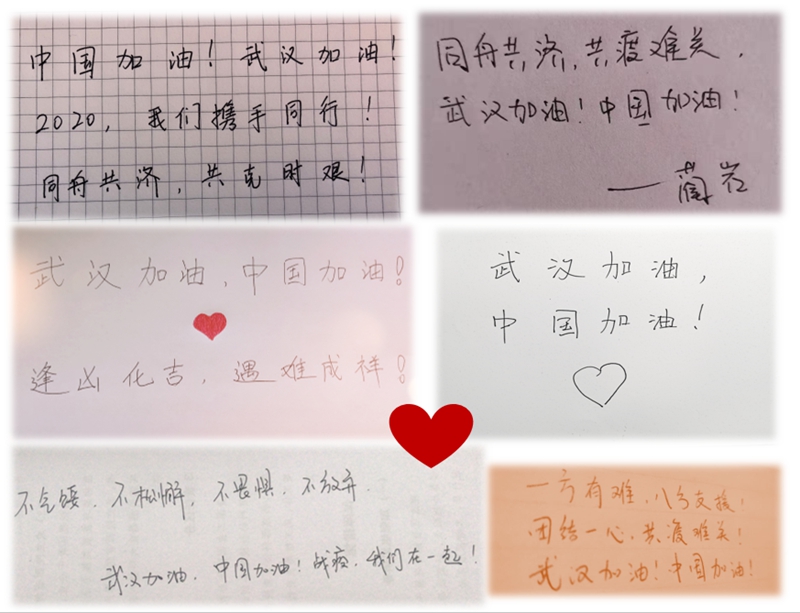 中国加油！武汉加油！
2020，我们携手同行！
同舟共济，共克时艰！
同舟共济，共渡难关．
武汉加油！中国加油！
——蔺岩
武汉加油，中国加油！
逢凶化吉，遇难成祥！
武汉加油，
中国加油！
不气馁．不松懈，不畏惧．不放弃．
武汉加油．中国加油！战疫．我们在一起！
一方有难，八方支援！
团结一心，共渡难关！
武汉加油！中国加油！